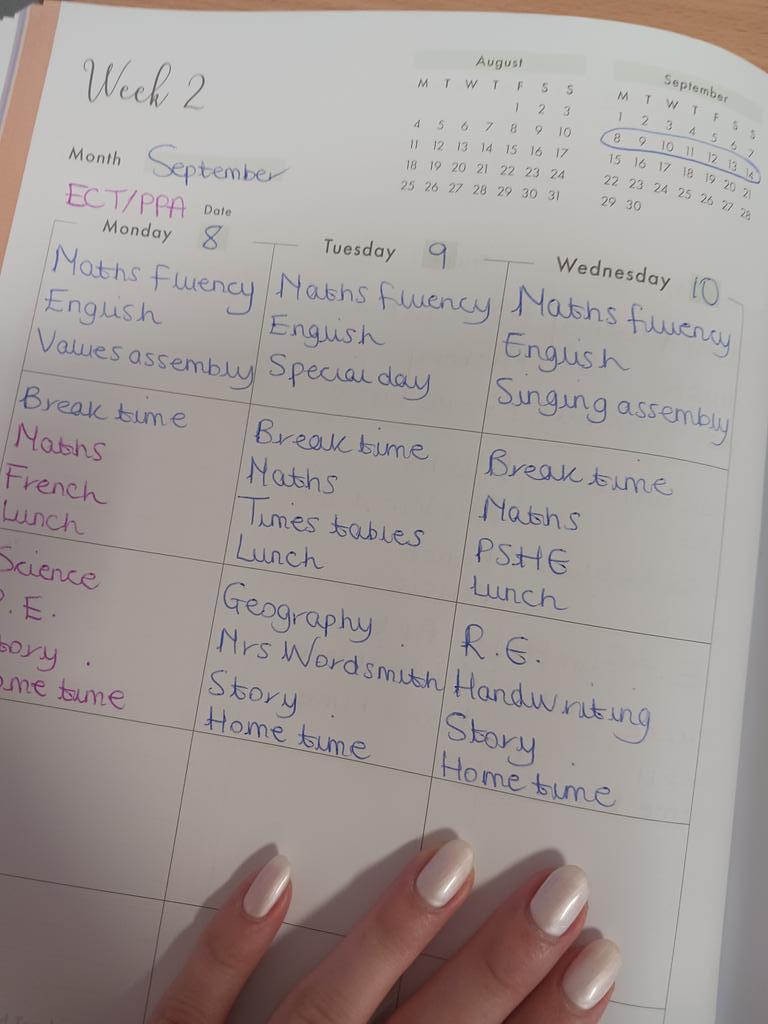 Week 2
Month September
ECT/PPA Date
August
M T W T F S S
1 2 3
4 5 6 7 8 9 10
11 12 13 14 15 16 17
18 19 20 21 22 23 24
25 26 27 28 29 30 31
September
M T W T F S S
1 2 3 4 5 6 7
8 9 10 11 12 13 14
15 16 17 18 19 20 21
22 23 24 25 26 27 28
29 30
Monday 8
Maths fluency
English
Values assembly
Break time
Maths
French
Lunch
Science
P.E.
tory
ome time
Tuesday 9
Maths fluency
English
Special day
Break time
Maths
Times tables
Lunch
Geography
Mrs Wordsmith
Story
Home time
Wednesday 10
Maths fluency
English
Singing assembly
Break time
Maths
PSHE
Lunch
R.E.
Handwriting
Story
Home time